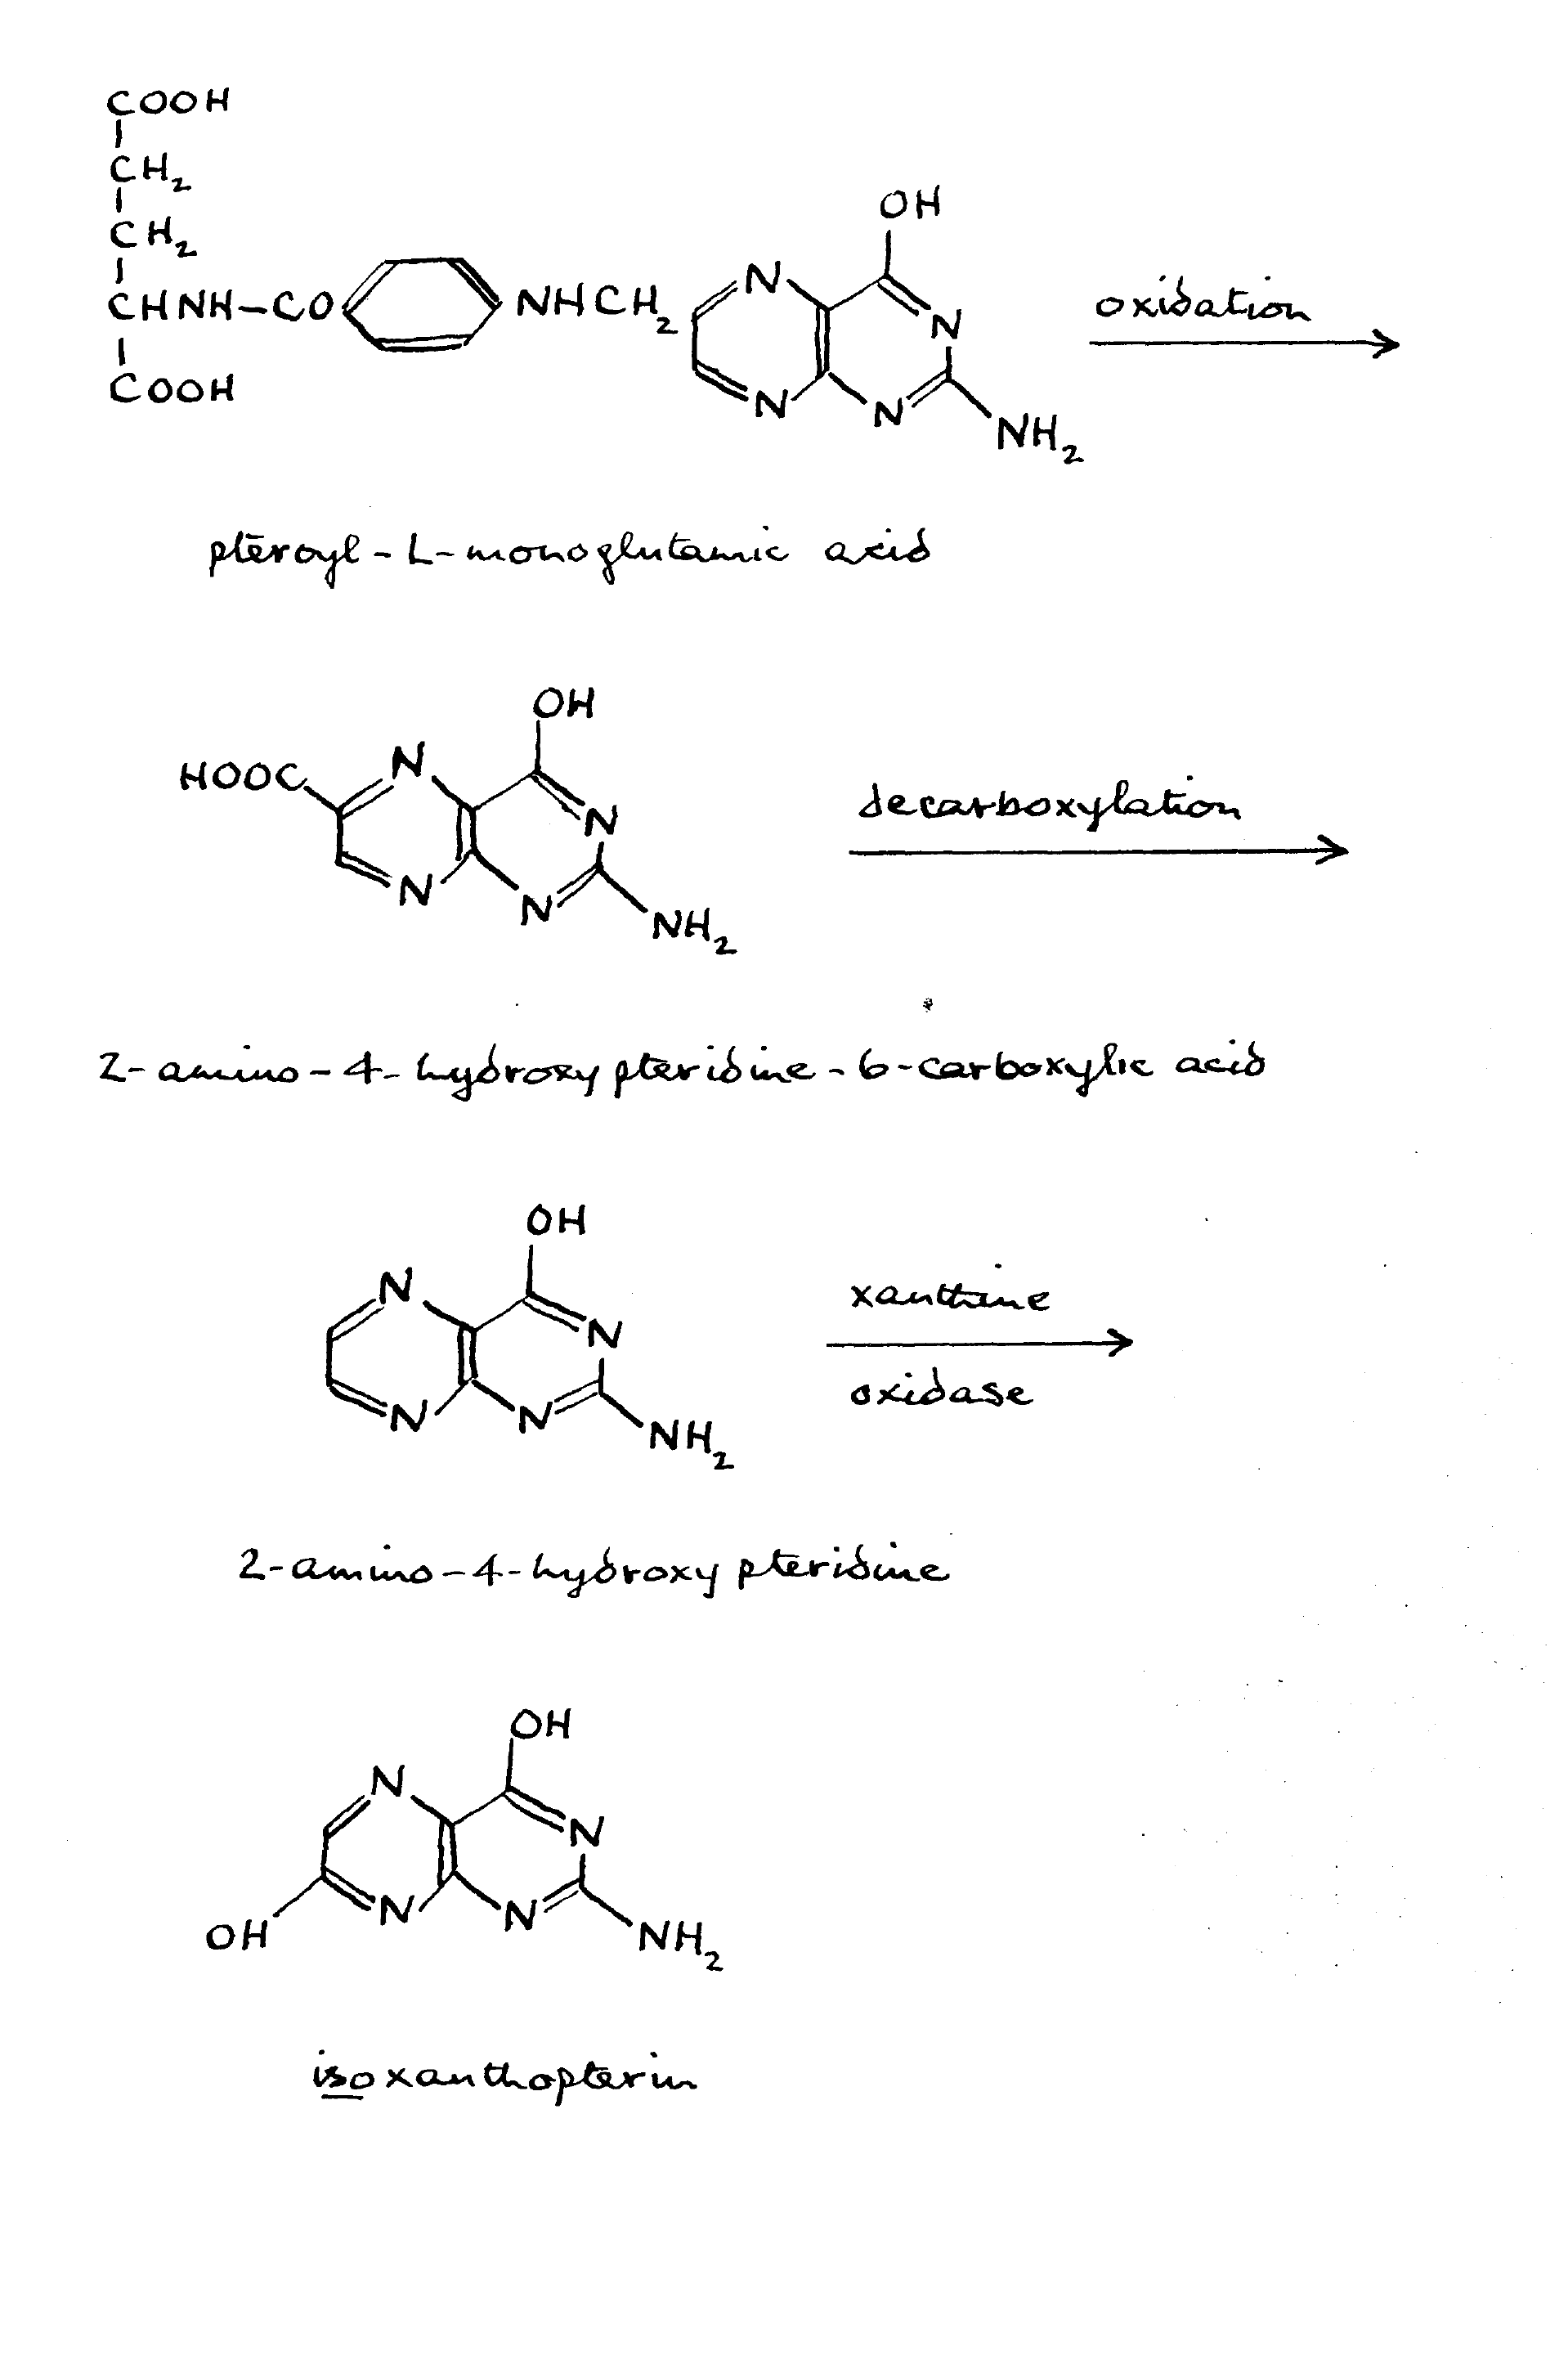 COOH
CH2
CH2
CHNH-CO NHCH2 N OH N N N NH2
COOH
oxidation
pteroyl-L-monoglutamic acid
HOOC N OH N N N NH2
decarboxylation
2-amino-4-hydroxypteridine-6-carboxylic acid
N OH N N N NH2
xanthine
oxidase
2-amino-4-hydroxypteridine
N OH N N N NH2
OH
isoxanthopterin